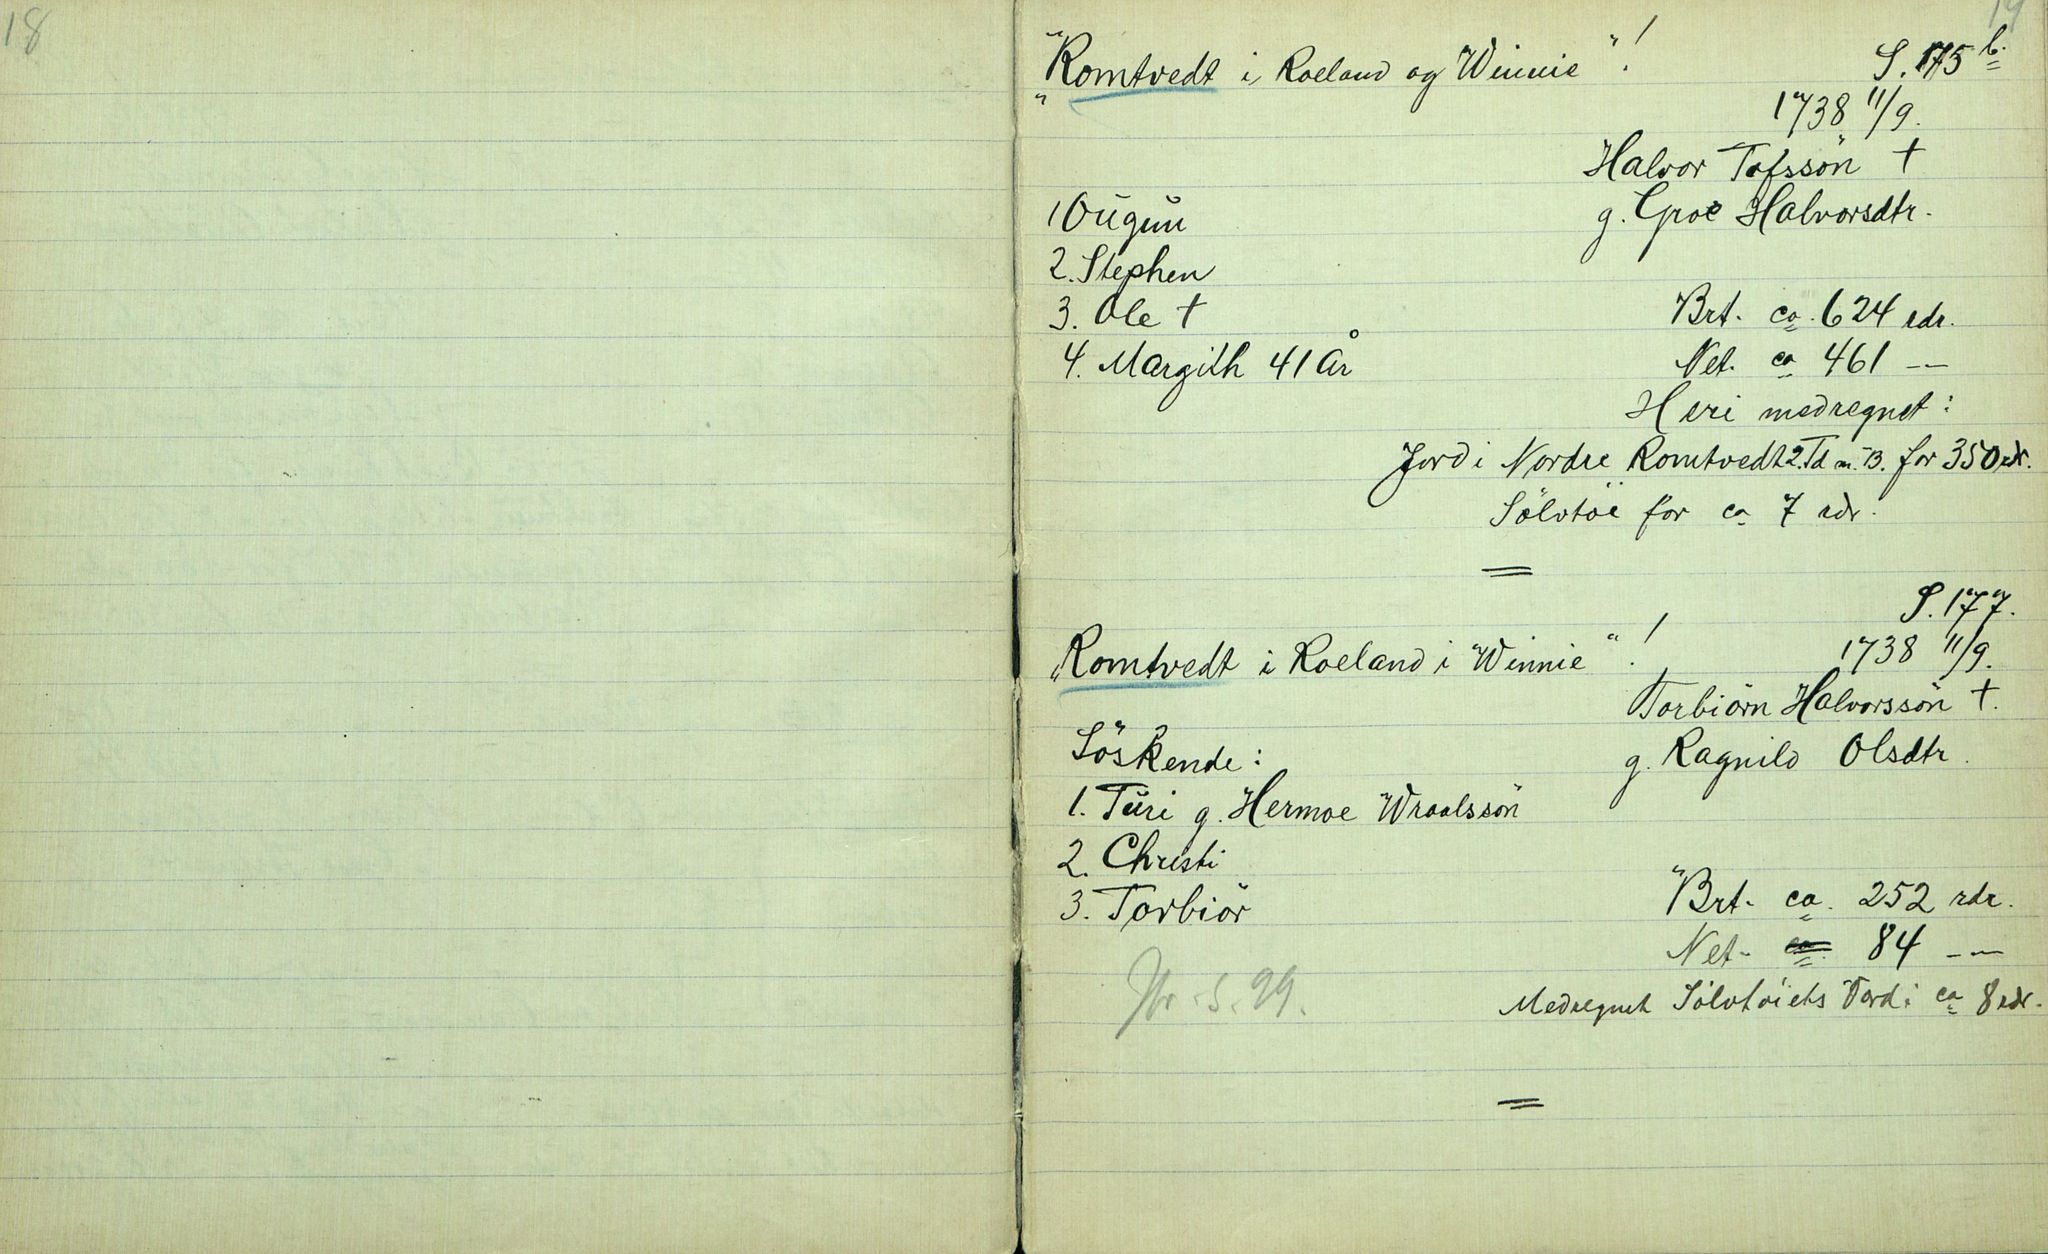 18
19
"Romtvedt i Roeland og Winnie"!
S. 175 b.
1738 11/9.
Halvor Tofssön †
g. Groe Halvorsdtr.
1 Oügün
2. Stephen
3. Ole †
4. Margith 41 år
Brt. ca. 624 rdr.
Net. ca 461 --
Heri medregnet:
Jord i Nordre Romtvedt 2. Td m. B. for 350 rdr.
Sölvtöi for ca 7 rdr.
S. 177.
"Romtvedt i Roeland i Winnie"!
1738 11/9.
Torbiörn Halvorssön †.
g. Ragnild Olsdtr.
Söskende:
1. Türi g. Hermoe Wraalssön
2. Christi
3. Torbiör
Brt. ca. 252 rdr.
Net. ca. 84 --
Medregnet Sölvtöiets Værdi ca 8 rdr.
Jfr. S. 99.